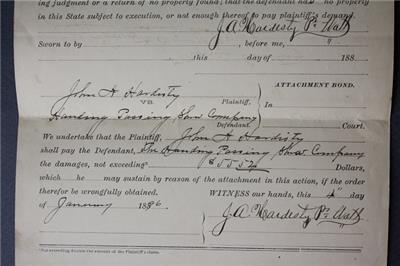 ing judgment or a return of no property found; that the defendant had no property
in this State subject to execution, or not enough thereof to pay plaintiff's demand.
J.A. Hardesty
Sworn to by before me,
this day of 188
ATTACHMENT BOND.
John H Hardisty
vs. Plaintiff, In
Passing Company
Defendant. Court.
We undertake that the Plaintiff, John H Hardisty
shall pay the Defendant, The Passing Company
the damages, not exceeding Dollars,
which he may sustain by reason of the attachment in this action, if the order
therefor be wrongfully obtained.
WITNESS our hands, this day
of January 1886
J.A. Hardesty
*Not exceeding double the amount of the Plaintiff's claim.